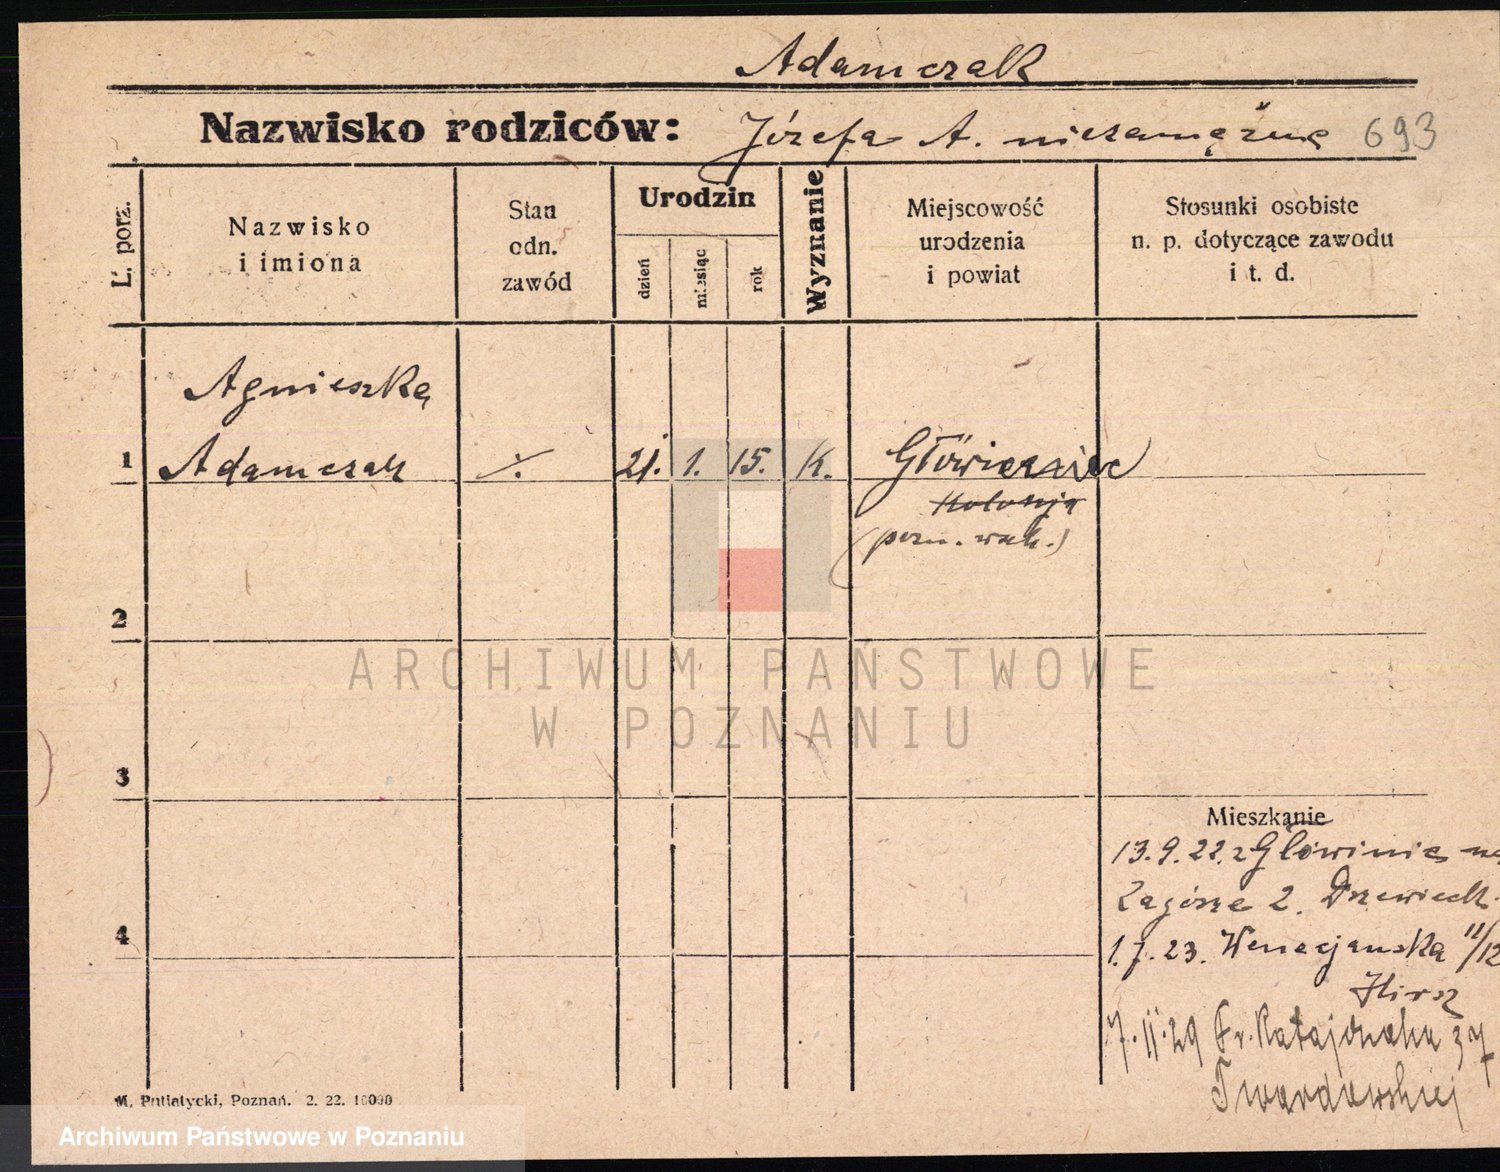 Adamczak
Nazwisko rodziców: Józefa A. niezamężna 693
L. porz.
Nazwisko
i imiona
Stan
odn.
zawód
Urodzin
dzień
miesiąc
rok
Wyznanie
Miejscowość
urodzenia
i powiat
Stosunki osobiste
n. p. dotyczące zawodu
i t. d.
Agnieszka
1 Adamczak ·/. 21. 1. 15. K. Główiezniec
Kolonja
(pozn. wsch.)
2
3
Mieszkanie
13.9.22. z Głowinie na
Zagórze 2. Drzewiecki
4
1.7.23. Wenecjańska 11/12
Hirsz
7.II.29 Fr. Ratajczaka
Twardowskiej
M. Putiatycki, Poznań. 2. 22. 10000
ARCHIWUM PAŃSTWOWE
W POZNANIU
Archiwum Państwowe w Poznaniu